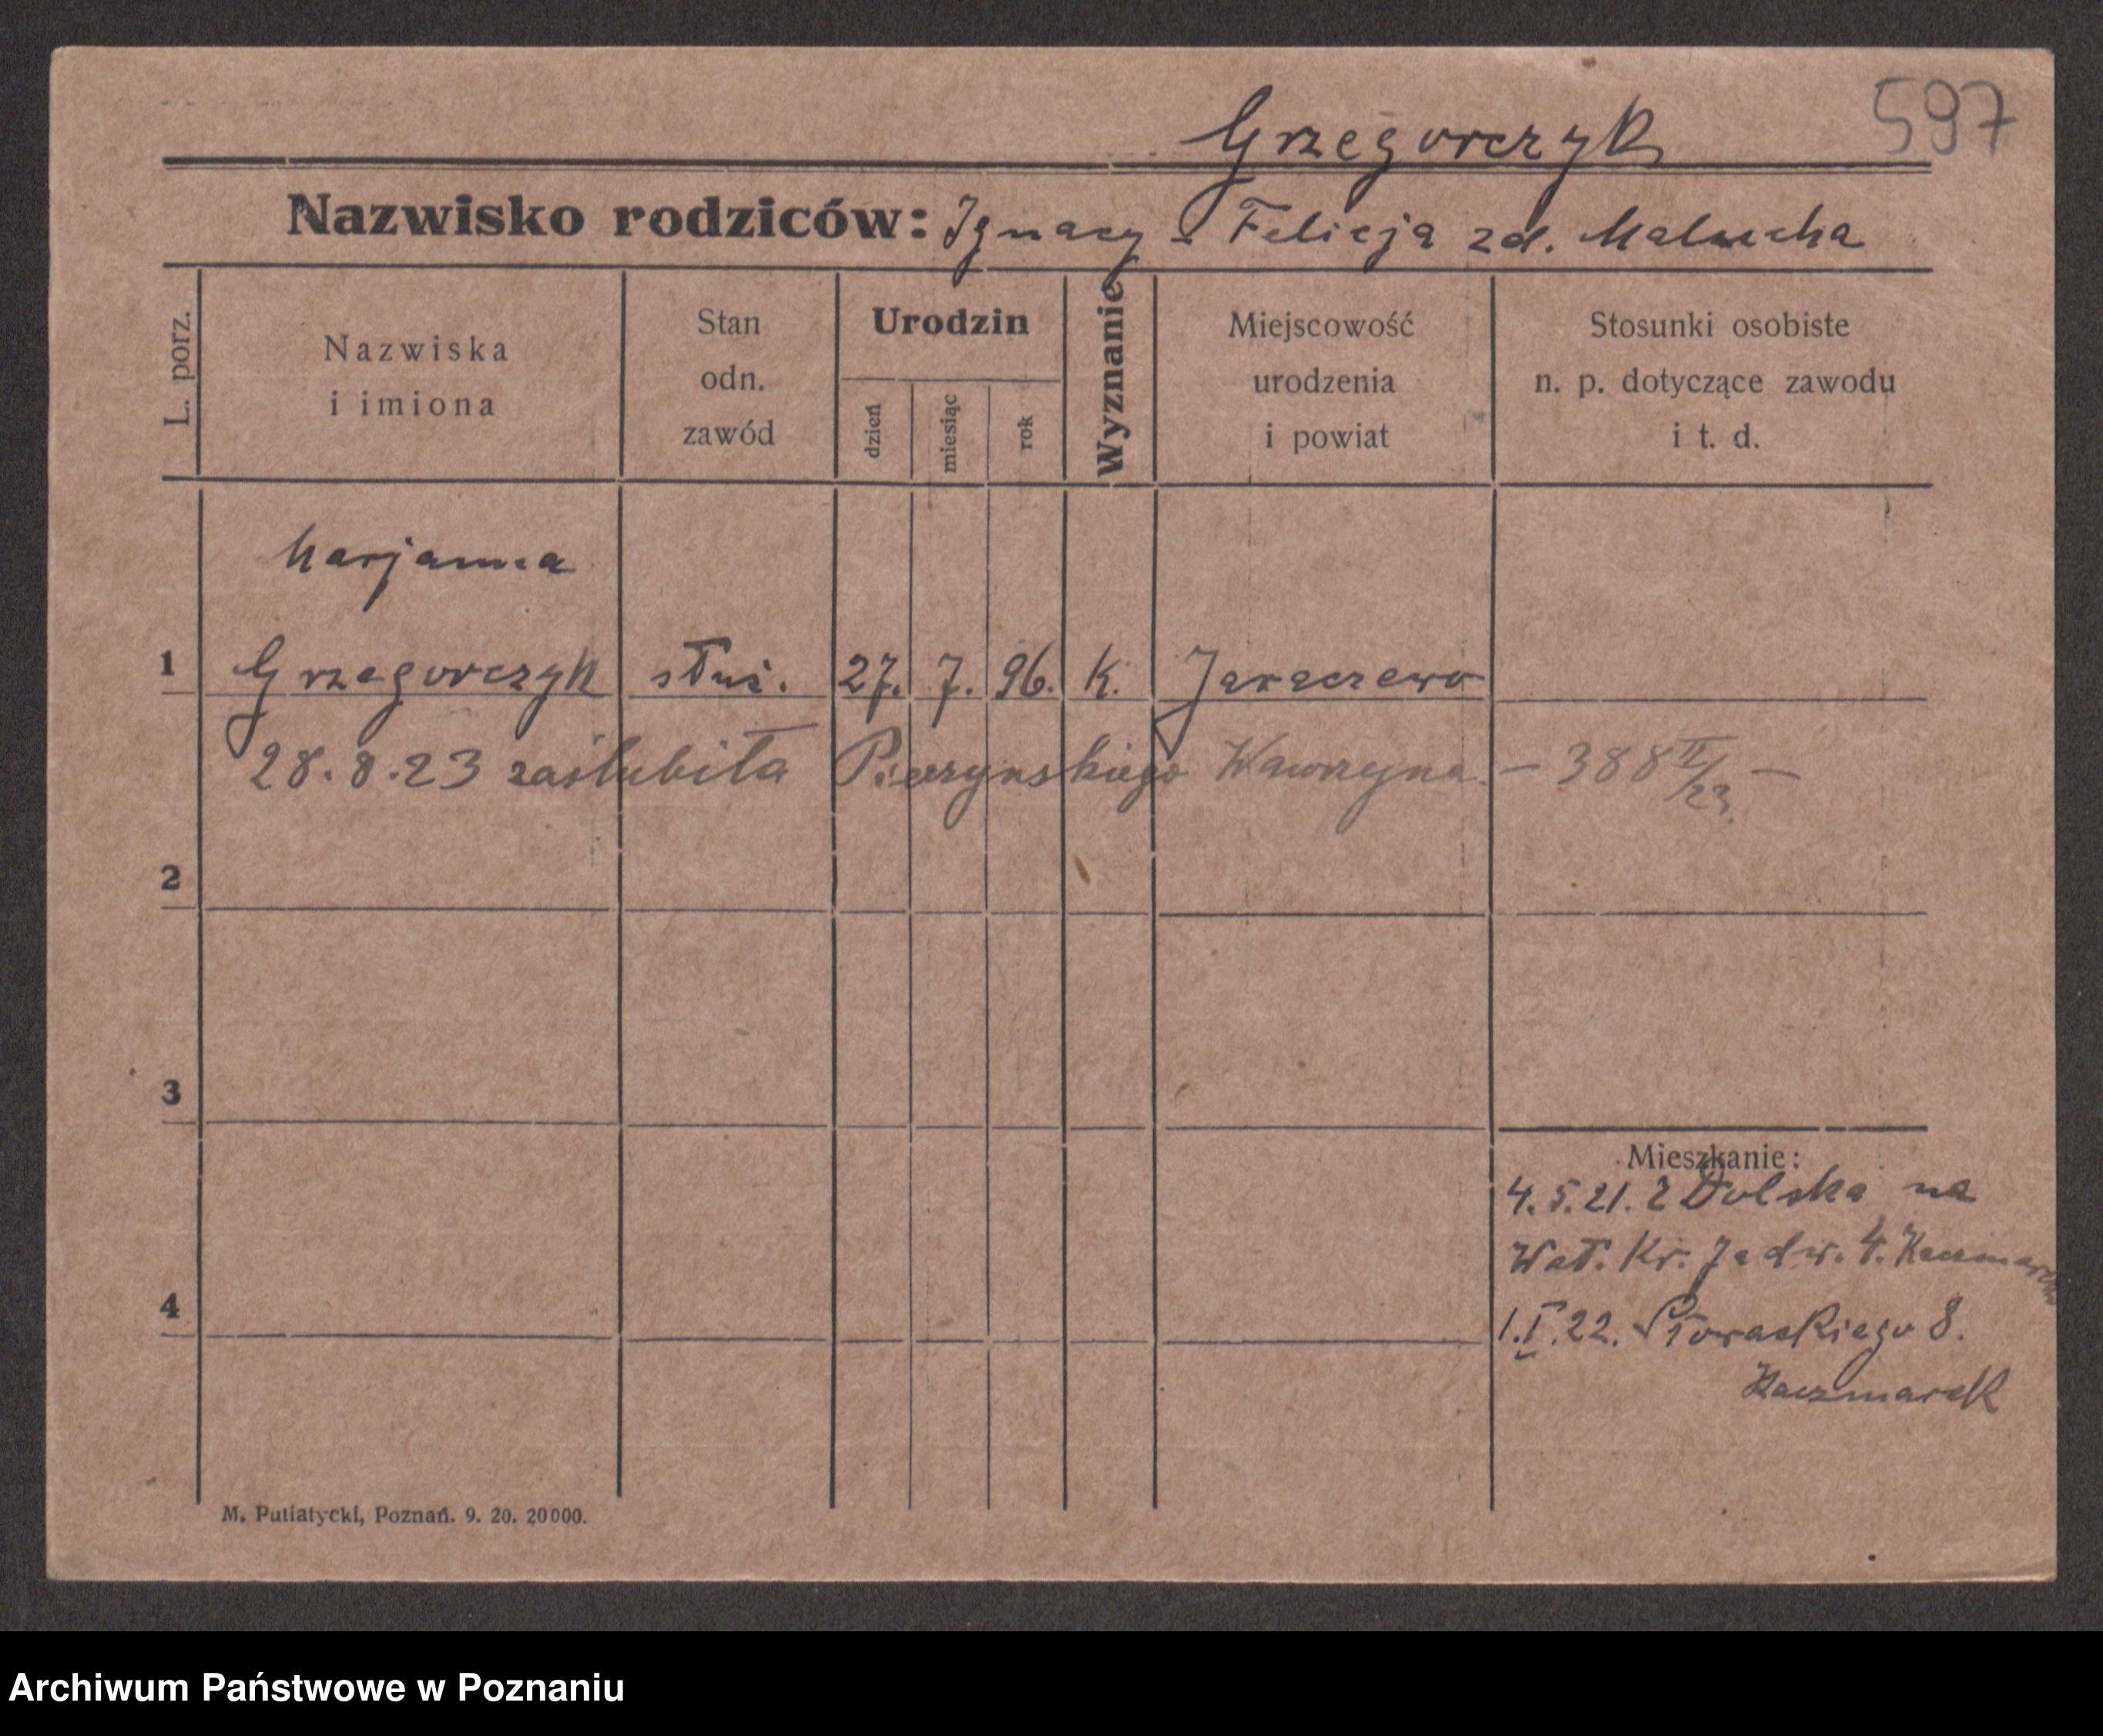 597
Grzegorczyk
Nazwisko rodziców: Ignacy - Felicja zd. Malucha
L. porz.
Nazwiska
i imiona
Stan
odn.
zawód
Urodzin
dzień
miesiąc
rok
Wyznanie
Miejscowość
urodzenia
i powiat
Stosunki osobiste
n. p. dotyczące zawodu
i t. d.
Marjanna
1 Grzegorczyk służ. 27. 7. 96. K. Jaraczewo
28.8.23 zaślubiła Pieczynskiego Wawrzyna - 388 II/23 -
2
3
Mieszkanie:
4.5.21. z Dolska na
Wał. Kr. Jadw. 4. Kaczmarek
4
1.I.22. Słowackiego 8.
Kaczmarek
M. Putiatycki, Poznań. 9. 20. 20000.
Archiwum Państwowe w Poznaniu